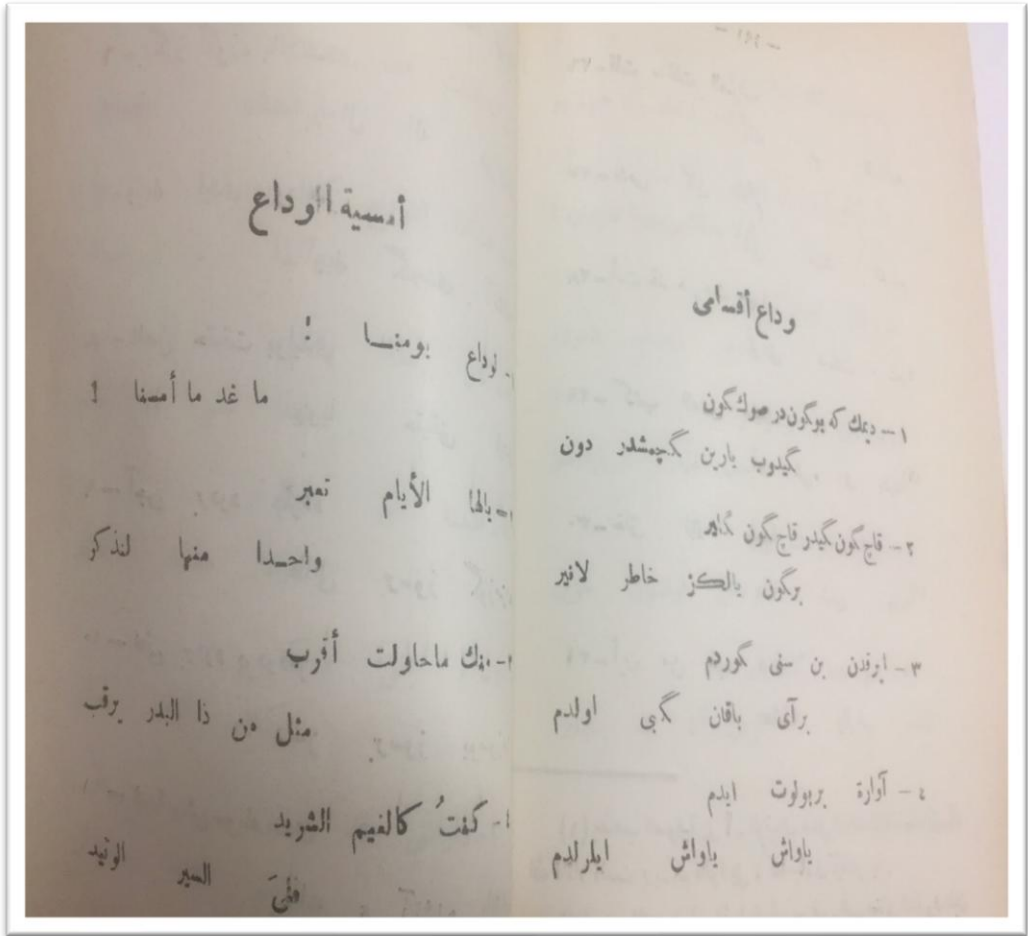 - ١٩١ -
وداع أقسامى
١ - ديمك كه بوگون در صوك گون
گيدوب يارين گچمشدر دون
٢ - قاچ گون گيدر قاچ گون گلير
برگون يالكز خاطر لانير
٣ - ايرفدن بن سنى گوردم
برآى باقان گبى اولدم
٤ - آوارة بربولوت ايدم
ياواش ياواش ايلرلدم
أمسية الوداع
لوداع يومنا !
ما غد ما أمسنا !
يالها الأيام تعبر
واحدا منها لنذكر
منك ماحاولت أقرب
مثل من ذا البدر يرقب
كنتُ كالغيم الشريد
ففىَ السير الوئيد